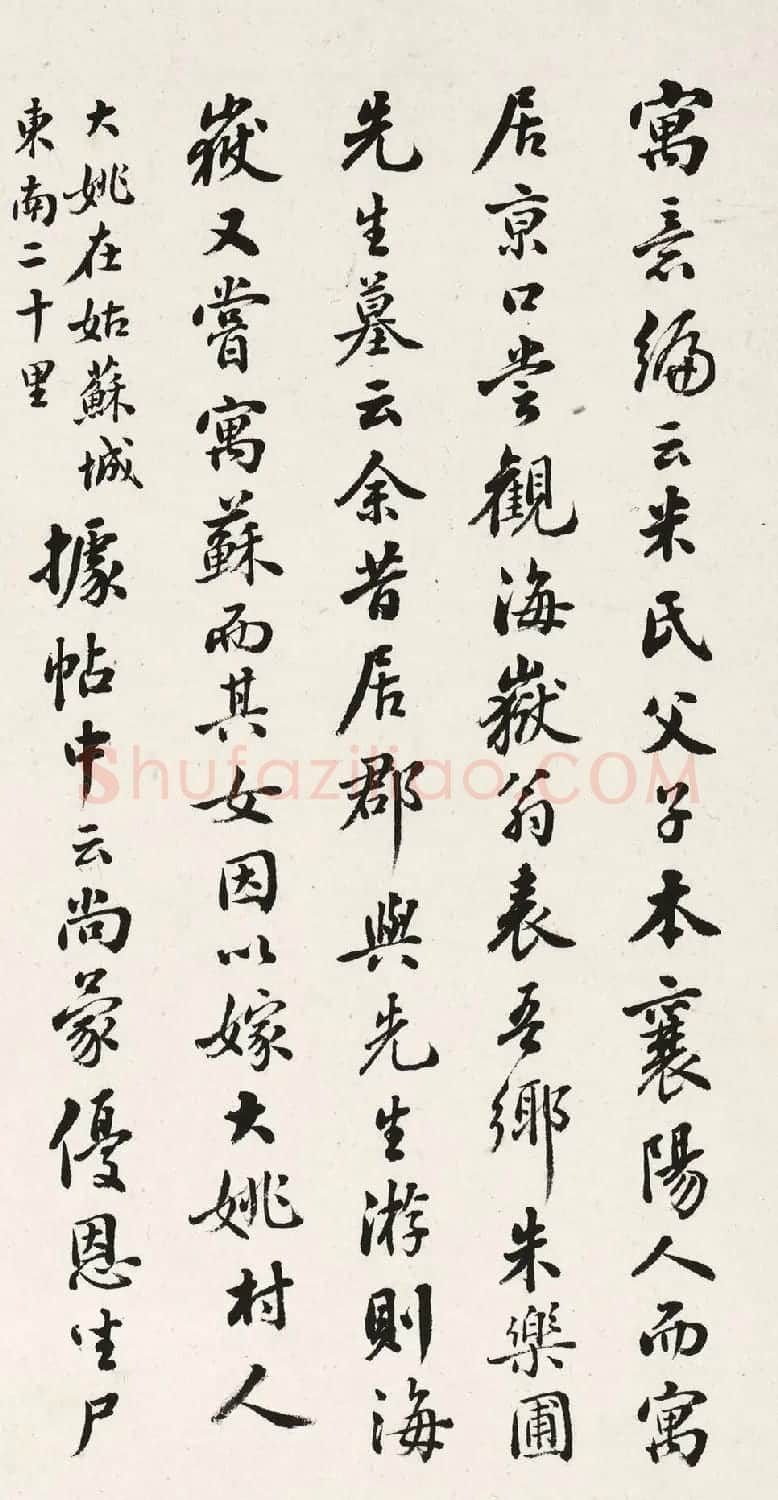 寓意編云米氏父子本襄陽人而寓
居京口嘗觀海嶽翁表吾鄉朱樂圃
先生墓云余昔居郡與先生游則海
嶽又嘗寓蘇而其女因以嫁大姚村人
大姚在姑蘇城
東南二十里
據帖中云尚蒙優恩坐尸
Shufaziliao.COM